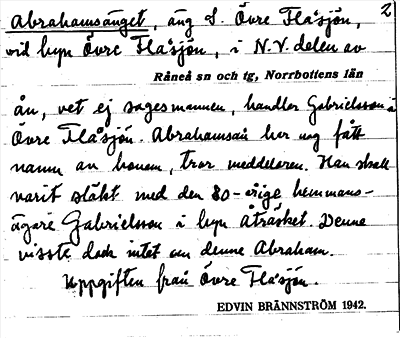 Abrahamsänget, äng S. Övre Flåsjön, 2
vid byn Övre Flåsjön, i N.V. delen av
Råneå sn och tg, Norrbottens län
ån, vet ej sagesmannen, handlar Gabrielsson i
Övre Flåsjön. Abrahamsån har nog fått
namn av honom, tror meddelaren. Han skall
varit släkt med den 80-årige hemmans-
ägare Gabrielsson i byn Åträsket. Denne
visste dock intet om denne Abraham.
Uppgiften från Övre Flåsjön.
EDVIN BRÄNNSTRÖM 1942.